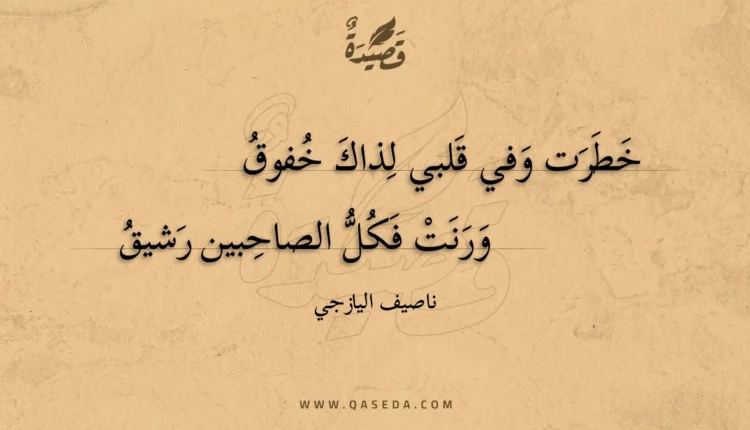 قَصِيْدَةٌ
خَطَرَت وَفي قَلبي لِذاكَ خُفوقُ
وَرَنَتْ فَكُلُّ الصاحِبين رَشيقُ
ناصيف اليازجي
WWW.QASEDA.COM